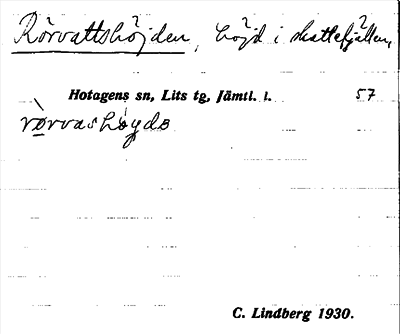 Rörvattshöjden, höjd i skattefjällen,
Hotagens sn, Lits tg, Jämtl. l. 57
ròrvashǿydɵ
C. Lindberg 1930.